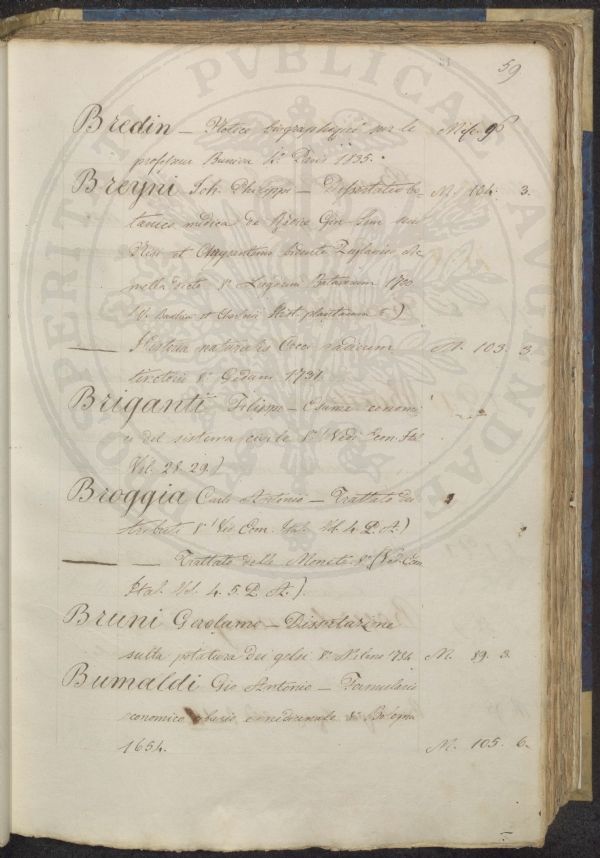 59
Bredin — Notice biographique sur le Misc. 96
professeur Buniva 8° Paris 1835.
Breyni Joh. Philippi — Dissertatio bo- M. 104. 3.
tanico medica de Radice Gin Sem seu
Nisi et Chrysanthemo bidente Zeylanico Ac-
mella dicto 8° Lugduni Batavorum 1700
(V. Bauhin et Cherleri Hist. plantarum)
— Historia naturalis Cocci radicum M. 103. 3.
tinctorii 8° Gedani 1731.
Briganti Filippo — Esame economi-
co del sistema civile 8° (Vedi Econ. Ital.
Vol. 28. 29.)
Broggia Carlo Antonio — Trattato dei
tributi 8° (Ved. Econ. Ital. Vol. 4. P. A.)
— — Trattato delle Monete 8° (Ved. Econ.
Ital. Vol. 4. 5. P. A.)
Bruni Gerolamo — Dissertazione
sulla potatura dei gelsi 8° Milano 784. M. 89. 3.
Bumaldi Gio Antonio — Formulario
economico 8° Bologna
1654. M. 105. 6.